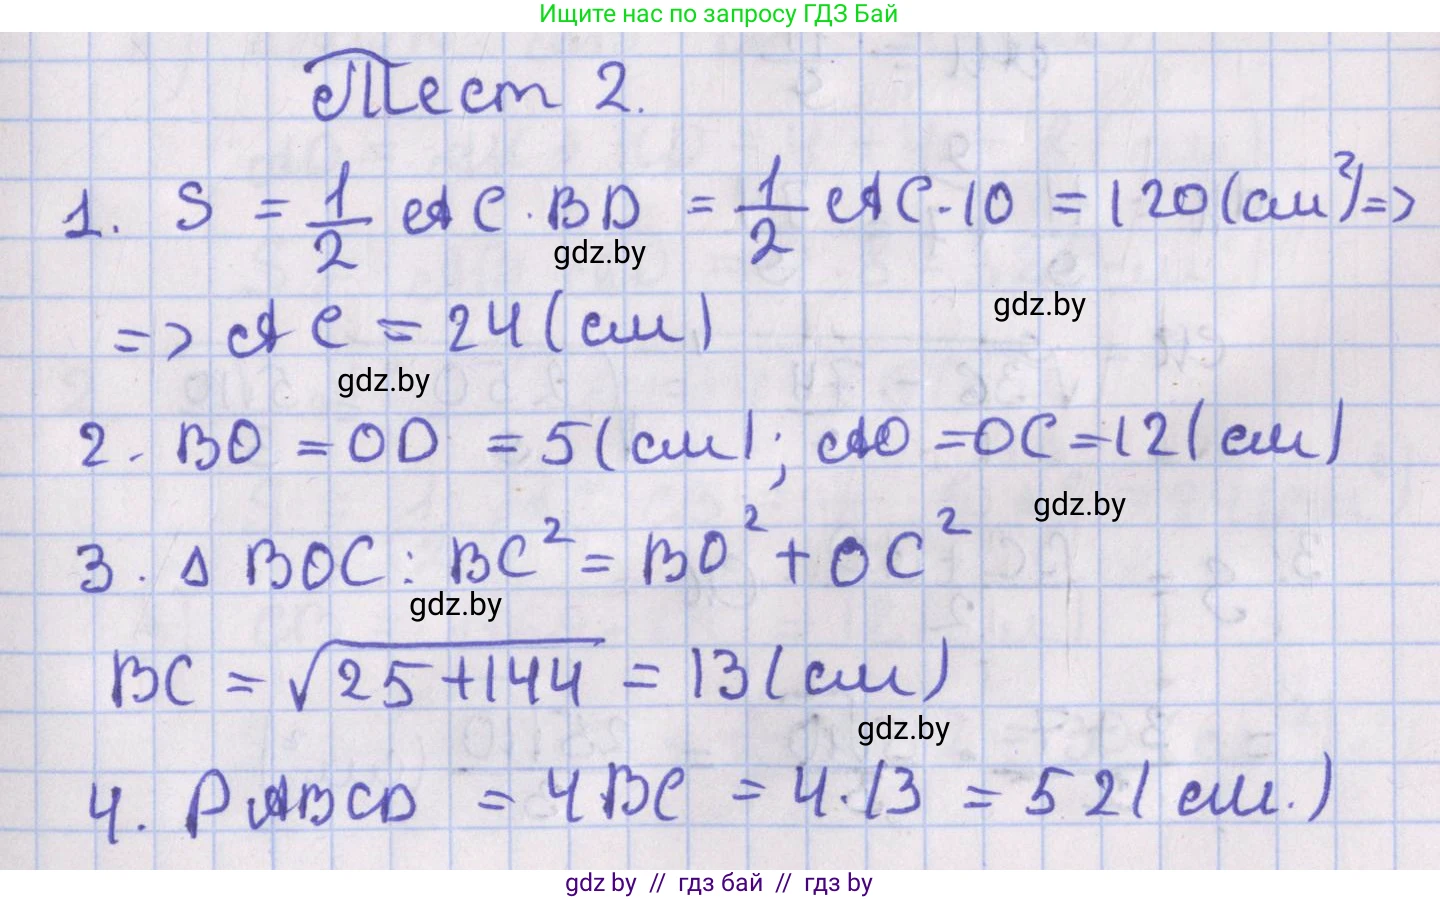 Ищите нас по запросу ГДЗ Бай
Тест 2.
1. S = 1/2 AC · BD = 1/2 AC · 10 = 120 (см²) =>
gdz.by
gdz.by
=> AC = 24 (см)
gdz.by
2. BO = OD = 5 (см); AO = OC = 12 (см)
gdz.by
3. Δ BOC : BC² = BO² + OC²
gdz.by
BC = √25+144 = 13 (см)
gdz.by
4. PABCD = 4BC = 4 · 13 = 52 (см.)
gdz.by // гдз бай // гдз by